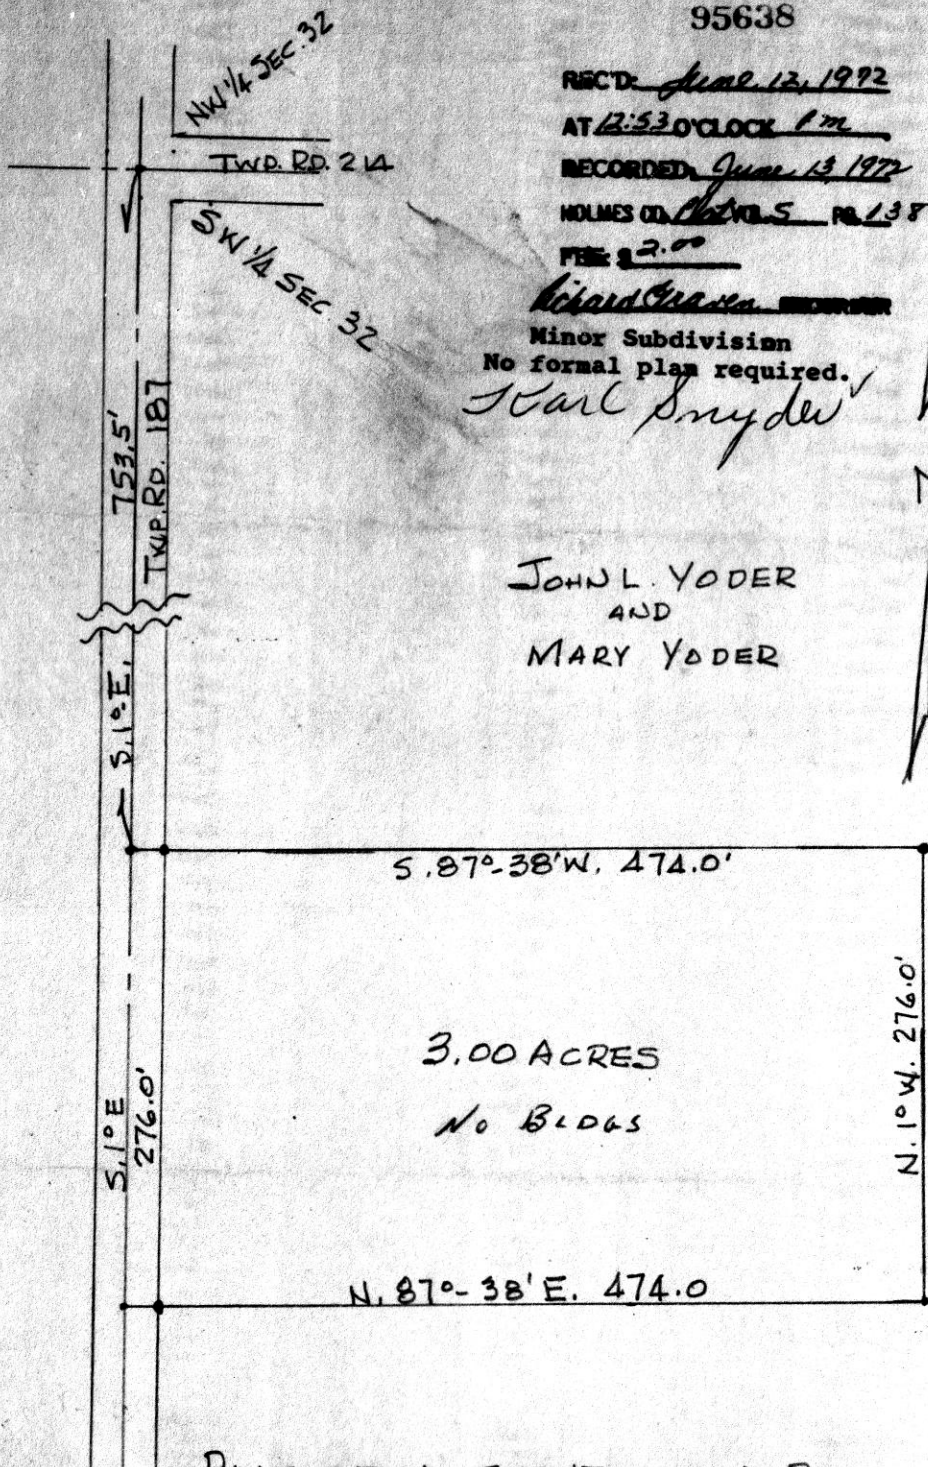 95638
REC'D: June 12, 1972
AT 12:53 O'CLOCK P m
RECORDED June 13 1972
HOLMES CO. Plat VOL 5 PG. 138
FEE $ 2.00
Richard Graven RECORDER
Minor Subdivision
No formal plan required.
Karl Snyder
NW 1/4 SEC. 32
TWP. RD. 214
SW 1/4 SEC 32
753.5'
TWP. RD. 187
JOHN L. YODER
AND
MARY YODER
S. 1° E.
S. 87°-38' W. 474.0'
3.00 ACRES
No BLDGS
S. 1° E
276.0'
N. 1° W. 276.0'
N. 87°-38' E. 474.0